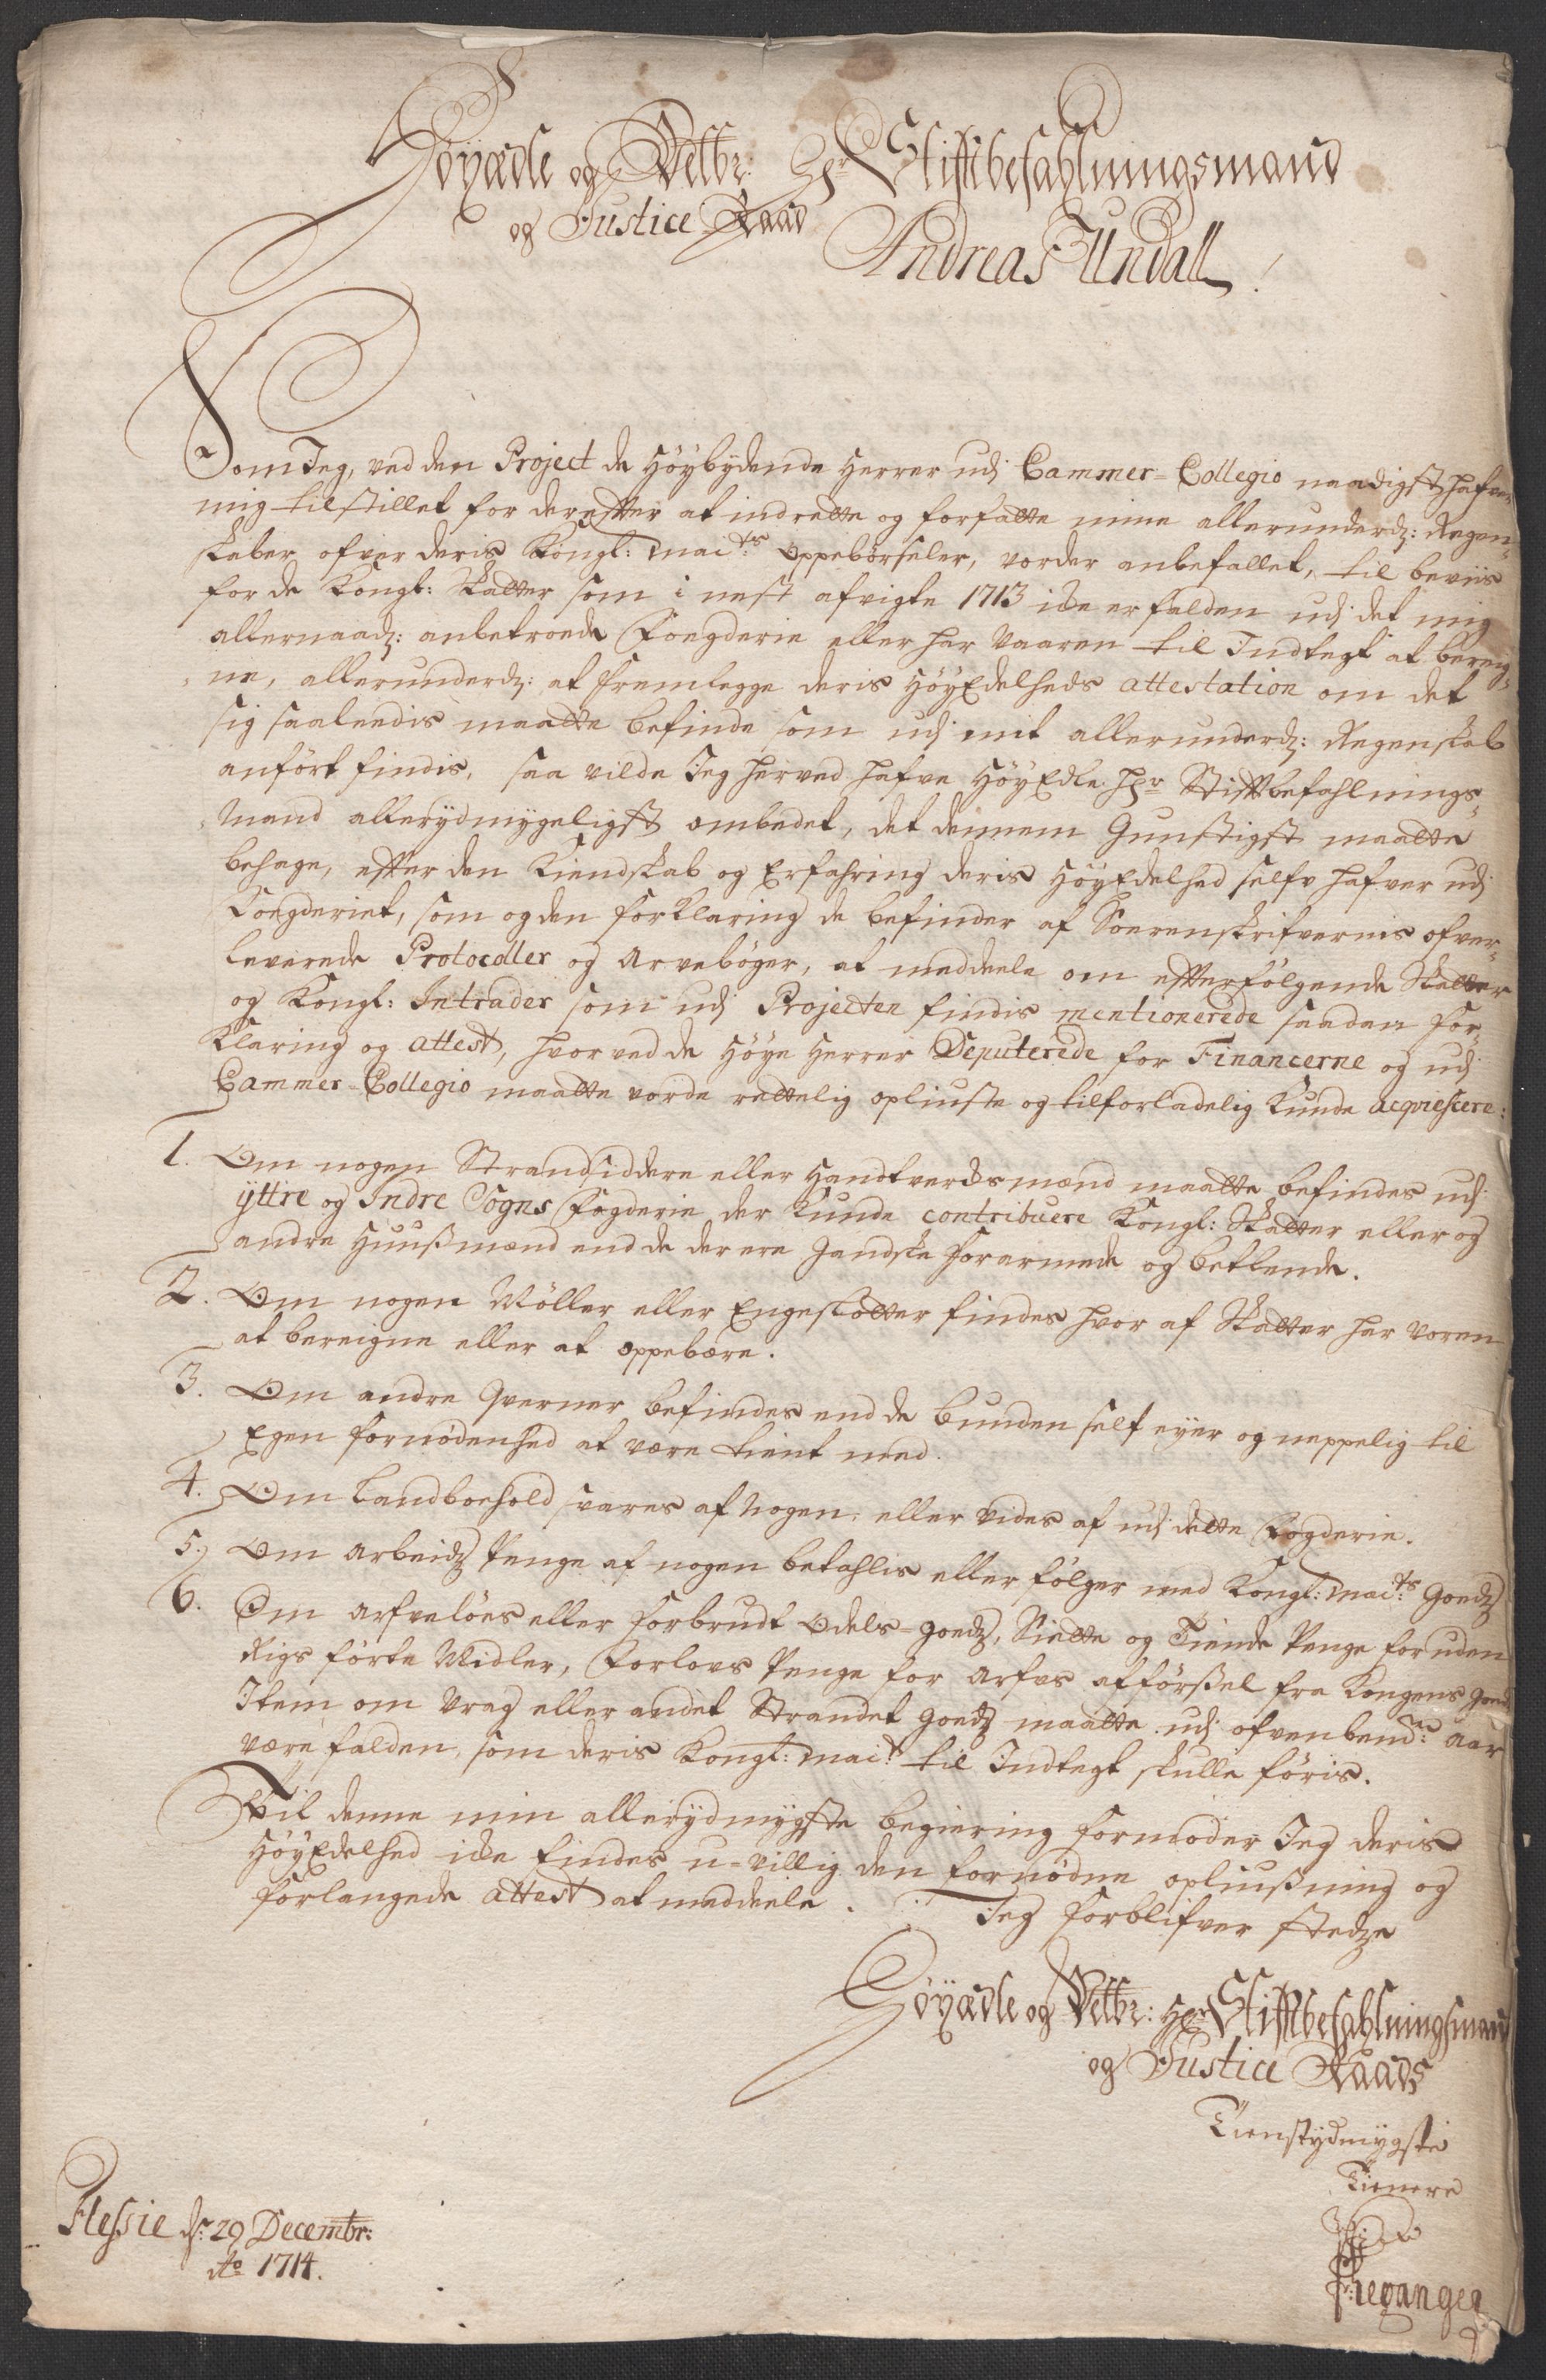 Höyædle og Velbr: Hr Stiftbefahlningsmand
og Justice Raad
Andreas Undall
Som Jeg, ved den Project de Höybydende Herrer udj Cammer-Collegio naadigst hafver
mig tilstillet for derefter at indrette og forfatte mine allerunderd: Regen-
skaber ofver deris Kongl: Maits Oppebörseler, vorder anbefallet, til beviis
for de Kongl: Skatter som i nest afvigte 1713 icke er falden udj det mig
allernaad: anbetroede Foegderie eller har vaaren til Indtegt at bereig-
ne, allerunderd: at fremlegge deris HöyEdelheds attestation om det
sig saaleedis maatte befinde som udj mit allerunderd: Regenskab
anfört findis, saa vilde Jeg herved hafve HöyEdle Hr Stiftbefahlnings-
Mand allerydmygeligst ombedet, det dennem Gunstigst maatte
behage, efter den Kiendskab og Erfahring deris HöyEdelhed self hafver udj
Foegderiet, som og den forklaring de befinder af Sorenskrifvernis ofver-
leverede Protocoller og Arveböger, at meddeele om efterfölgende Skatter
og Kongl: Intrader som udj Projecten findis mentionerede saadan for-
Klaring og attest, hvorved de Höye Herrer Deputerede for Financerne og udj
Cammer-Collegio maatte vorde rettelig opliuste og tilforladelig Kunde acqviescere:
1. Om nogen Strandsiddere eller Handtvercksmænd maatte befindes udj
ÿttre og Indre Sogns Fogderie der Kunde contribuere Kongl: Skatter eller og
andre Huusmænd end de der ere gandske forarmede og betlende.
2. Om nogen Möller eller Engeslotter findes hvor af Skatter har voren
at bereigne eller at oppebære.
3. Om andre Qverner befindes end de bunden self eyer og neppelig til
Egen fornödenhed at være tient med.
4. Om Landboehold svares af nogen, eller vides af udj dette Fogderie.
5. Om Arbeidz Penge af nogen betahlis eller fölger med Kongl: Maits Goedz
6. Om Arfvelöes eller forbrudt Odels-goedz, Siette og Tiende Penge foruden
Rigs förte Midler, Forlovs Penge for Arfvs afförssel fra Kongens Goed
Item om Vrag eller andet Strandet goedz maatte udj ofvenbemte Aar
være falden, som deris Kongl: Mait til Indtegt skulle föris.
Til denne min allerydmygste begiering formoder Jeg deris
HöyEdelhed icke findes u-villig den fornödne opliussning og
forlangede attest at meddeele. Jeg forblifver stedze
Höyædle og Velbr: Hr Stiftbefahlningsmand
og Justice Raads
Tienstydmygste
Tienere
Flessie d: 29 Decembr:
Ao 1714.